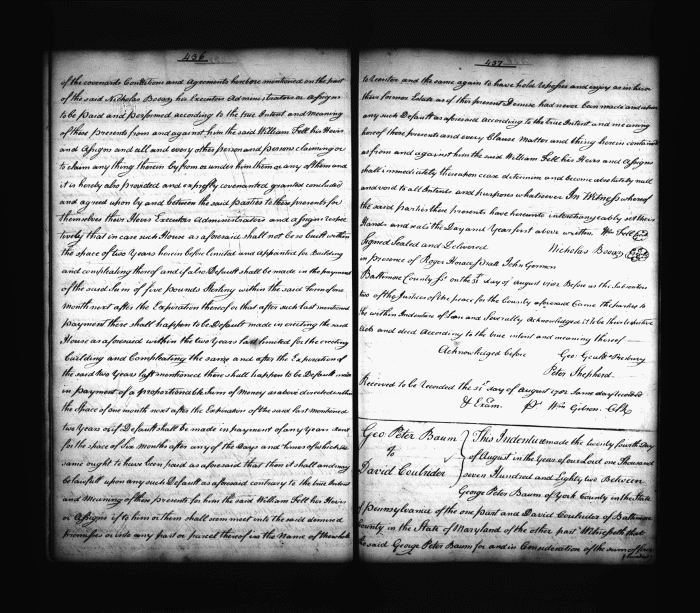 436
of the covenants Conditions and Agreements herebefore mentioned on the part
of the said Nicholas Boean his Executors Administrators or Assigns
to be paid and performed according to the true Intent and meaning
of these presents from and against him the said William Fell his Heirs
and Assigns and all and every other person and persons claiming or
to claim any thing therein by from or under him them or any of them and
it is hereby also provided and expressly covenanted granted concluded
and agreed upon by and between the said parties to these presents for
themselves their Heirs Executors Administrators and Assigns respec
tively that in case such House as aforesaid shall not be so built within
the space of two Years herein before limited and appointed for Building
and compleating thereof and if also Default shall be made in the payment
of the said Sum of five pounds Sterling within the said Term of one
month next after the Expiration thereof or that after such last mentioned
payment there shall happen to be Default made in erecting the said
House as aforesaid within the two Years last limited for the erecting
building and Compleating the same and after the Expiration of
the said two Years last mentioned there shall happen to be Default made
in payment of a proportionable Sum of Money as above directed within
the Space of one month next after the Expiration of the said last mentioned
two Years or if Default shall be made in payment of any Years rent
for the space of Six Months after any of the Days and times of which the
same ought to have been paid as aforesaid that then it shall and may
be lawfull upon any such Default as aforesaid contrary to the true Intent
and Meaning of these presents for him the said William Fell his Heirs
or Assigns if to him or them shall seem meet into the said demised
premises or into any part or parcel thereof in the Name of the whole
437
to reenter and the same again to have hold repossess and enjoy as in his or
their former Estate as if this present Demise had never been made and upon
any such Default as aforesaid according to the true Intent and meaning
hereof these presents and every Clause Matter and thing herein contained
as from and against him the said William Fell his Heirs and Assigns
shall immediately thereupon cease determine and become absolutely null
and void to all Intents and purposes whatsoever In Witness whereof
the said parties these presents have hereunto interchangeably set their
Hands and seals the Day and Year first above written Wm Fell
Signed Sealed and Delivered Nicholas Boean
in presence of John Gorman
Baltimore County ss on the day of August 1782 Before us the Subscribers
two of the Justices of the peace for the County aforesaid Came the parties to
the within Indenture of Lease and Severally Acknowledged it to be their
Acts and deed According to the true intent and meaning thereof
Acknowledged before Geo:
Peter Shepherd
Received to be Recorded the day of August 1782 Same day recorded
& Exam. pr Wm Gibson Clk
Geo. Peter Baum
to
David Coutrider
This Indenture made the twenty fourth Day
of August in the Year of our Lord one Thousand
seven Hundred and Eighty two Between
George Peter Baum of York County in the State
of Pennsylvania of the one part and David Coutrider of Baltimore
County in the State of Maryland of the other part Witnesseth that
the said George Peter Baum for and in Consideration of the sum of